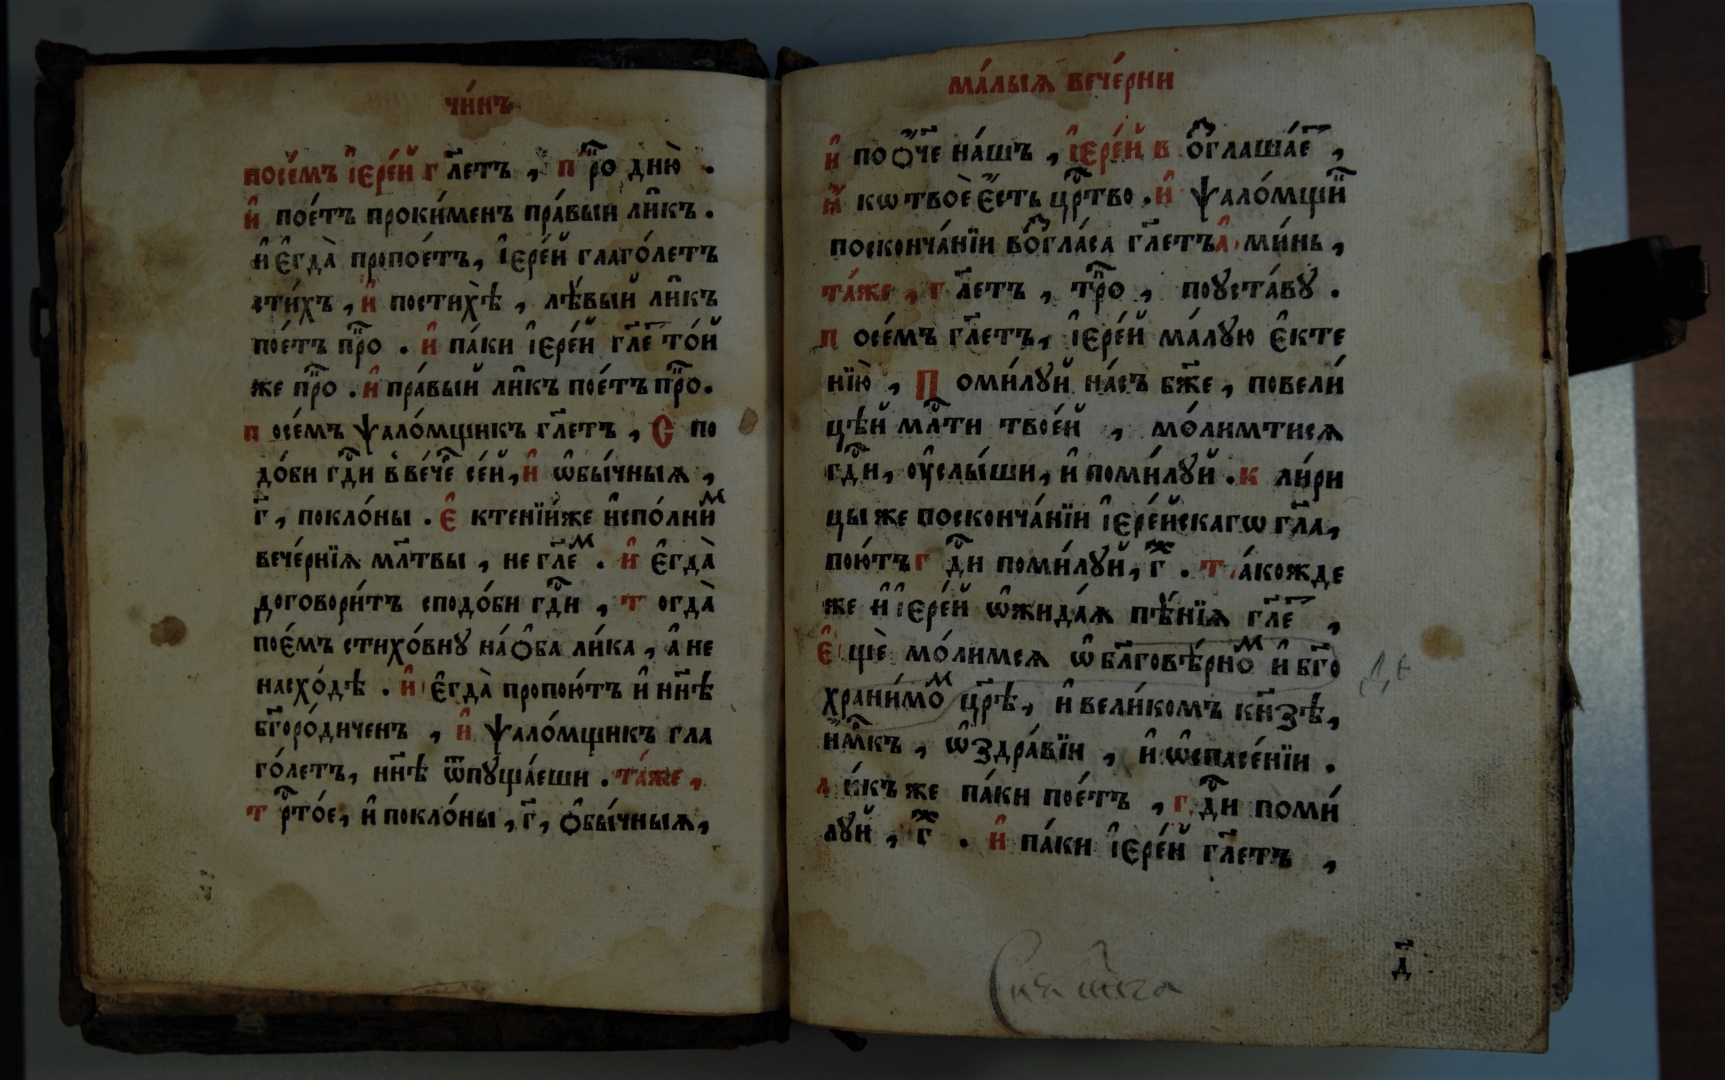 чи́нъ
посе́мъ і҆ере́й гл҃етъ , прⷪ҇ дню̀ .
и҆ пое́тъ проки́менъ пра́вый ли́къ .
и҆ є҆гда̀ пропое́тъ, і҆ере́й глаго́летъ
сти́хъ , и҆ постихѣ̀ , лѣ́вый ли́къ
пое́тъ прⷪ҇ . и҆ па́ки і҆ере́й гл҃е то́й
же прⷪ҇ . и҆ пра́вый ли́къ пое́тъ прⷪ҇.
посе́мъ ѱало́мщикъ гл҃етъ , Спо
до́би гдⷭ҇и в ве́че се́й, и҆ ѡ҆бы́чныѧ ,
г҃ , покло́ны . Є҆ктенїи́же и҆спо́лниⷨ
вече́рнїѧ мл҃твы , не гл҃еⷨ . и҆ є҆гда̀
договори́тъ сподо́би гдⷭ҇и , тогда̀
пое́мъ стихо́внꙋ на́ ѻ҆ба ли́ка , а҆ не
насхо́дѣ . и҆ є҆гда̀ пропою́тъ и҆ нн҃ѣ
бг҃оро́диченъ , и҆ ѱало́мщикъ гла
го́летъ, нн҃ѣ ѿпꙋща́еши . та́же ,
трⷭ҇то́е, и҆ покло́ны , г҃, ѻ҆бы́чныѧ,
ма́лыѧ вече́рни
и҆ по ѻ҆́ч҃е на́шъ , і҆ере́й воⷥгласша́е ,
ꙗ҆́кѡ твоѐ є҆́сть црⷭ҇тво . и҆ ѱало́мщиⷦ
поскончанїи воⷥгла́са гл҃етъ а҆ми́нь ,
та́же , гл҃етъ , трⷪ҇ , поꙋста́вꙋ .
посе́мъ гл҃етъ, і҆ере́й ма́лꙋю є҆кте
нїю̀ , Поми́лꙋй на́съ бж҃е , повели́
цѣй млⷭ҇ти твое́й , мо́лимтисѧ
гдⷭ҇и, ᲂу҆слы́ши, и҆ поми́лꙋй . кли́ри
цы же поскончанїи і҆ере́йскагѡ гл҃а,
пою́тъ гдⷭ҇и поми́лꙋй, г҃ⷤ . та́кожде
же и҆ і҆ере́й ѡ҆жида́ѧ пѣ́нїѧ гл҃е ,
Є҆щѐ мо́лимсѧ ѡ҆ бл҃говѣ́рноⷨ и҆ бг҃о
храни́моⷨ цр҃ѣ, и҆ вели́комъ кн҃зѣ,
и҆́мⷬ҇къ , ѡ҆ здра́вїи , и҆ ѡ҆ спасе́нїи .
ли́къ же па́ки пое́тъ , гдⷭ҇и поми́
лꙋй , г҃ⷤ . и҆ па́ки і҆ере́й гл҃етъ ,
д҃